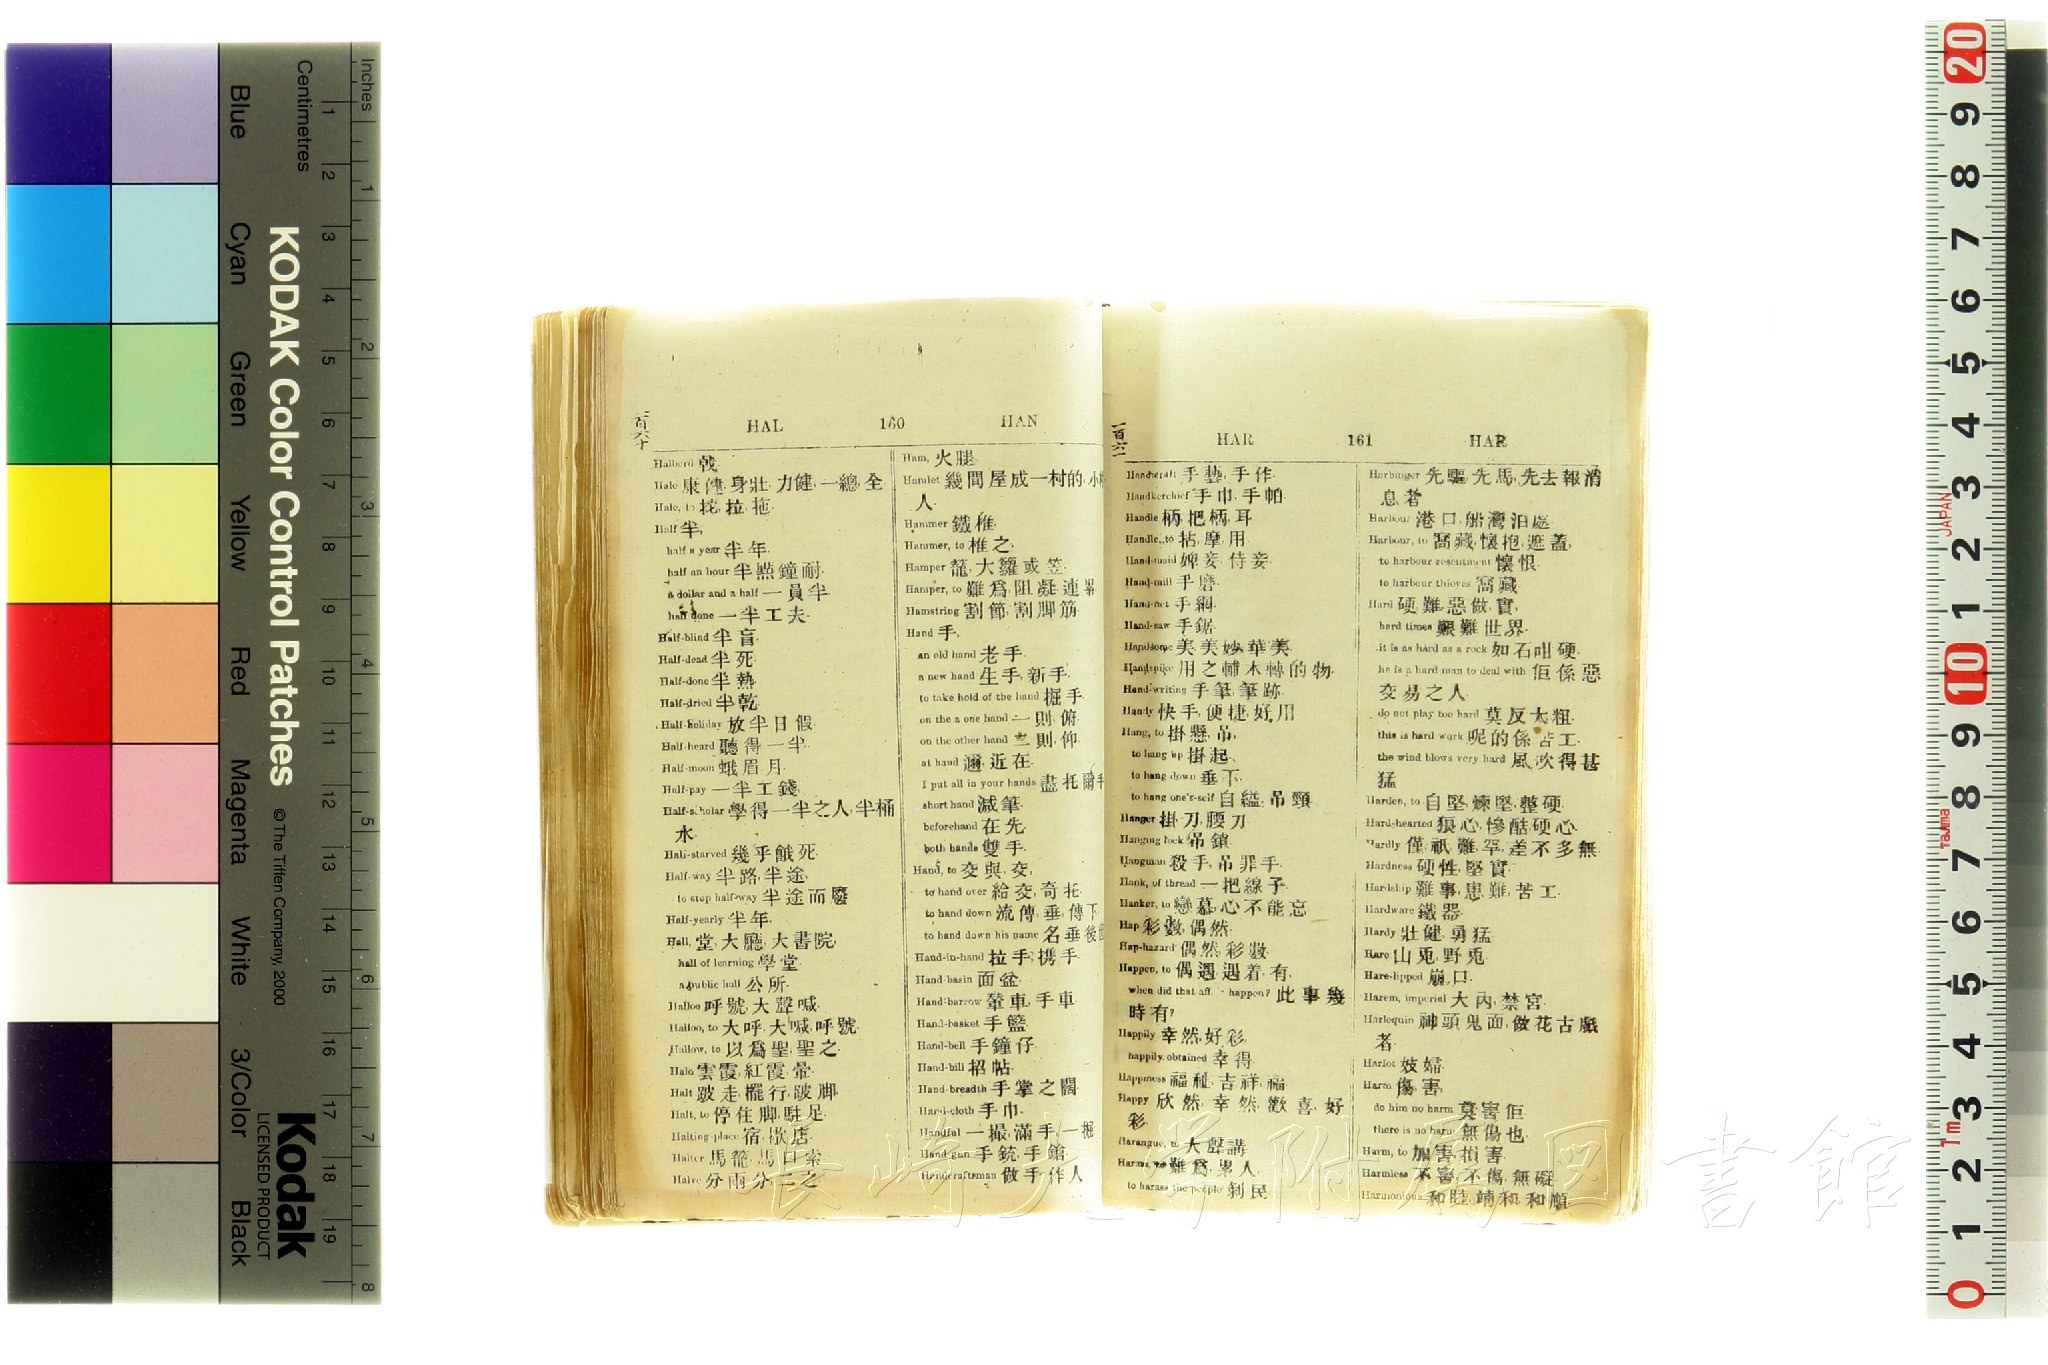 Inches
Centimetres
KODAK Color Control Patches
© The Tiffen Company, 2000
Kodak
LICENSED PRODUCT
Blue
Cyan
Green
Yellow
Red
Magenta
White
3/Color
Black
一百六十
HAL 160 HAN
Halberd 戟
Hale 康健, 身壯, 力健, 一總, 全
Hale, to 扡, 拉, 拖
Half 半
half a year 半年
half an hour 半點鐘耐
a dollar and a half 一員半
half done 一半工夫
Half-blind 半盲
Half-dead 半死
Half-done 半熟
Half-dried 半乾
Half-holiday 放半日假
Half-heard 聽得一半
Half-moon 蛾眉月
Half-pay 一半工錢
Half-scholar 學得一半之人, 半桶
水
Half-starved 幾乎餓死
Half-way 半路, 半途
to stop half-way 半途而廢
Half-yearly 半年
Hall, 堂, 大廳, 大書院
hall of learning 學堂
a public hall 公所
Halloo 呼號, 大聲喊
Halloo, to 大呼, 大喊, 呼號
Hallow, to 以爲聖, 聖之
Halo 雲霞, 紅霞, 暈
Halt 跛走, 擺行, 跛脚
Halt, to 停住脚, 駐足
Halting-place 宿, 歇店
Halter 馬籠, 馬口索
Halve 分兩分
Ham, 火腿
Hamlet 幾間屋成一村的, 小
人
Hammer 鐵椎
Hammer, to 椎之
Hamper 籠, 大籮或笠
Hamper, to 難爲, 阻礙, 連累
Hamstring 割節, 割脚筋
Hand 手
an old hand 老手
a new hand 生手, 新手
to take hold of the hand 掘手
on the a one hand 一則, 俯
on the other hand 二則, 仰
at hand 邇, 近在
I put all in your hands 盡托爾手
short hand 減筆
beforehand 在先
both hands 雙手
Hand, to 交與, 交
to hand over 給交, 寄托
to hand down 流傳, 垂, 傳下
to hand down his name 名垂後
Hand-in-hand 拉手, 携手
Hand-basin 面盆
Hand-barrow 輦車, 手車
Hand-basket 手籃
Hand-bell 手鐘仔
Hand-bill 招帖
Hand-breadth 手掌之闊
Hand-cloth 手巾
Handful 一撮, 滿手, 一掘
Hand-gun 手銃, 手鎗
Handcraftsman 做手作人
一百六一
HAR 161 HAR
Handicraft 手藝, 手作
Handkerchief 手巾, 手帕
Handle 柄, 把柄, 耳
Handle, to 拈, 摩, 用
Hand-maid 婢妾, 侍妾
Hand-mill 手磨
Hand-net 手網
Hand-saw 手鋸
Handsome 美, 美妙, 華美
Handspike 用之輔木轉的物
Hand-writing 手筆, 筆跡
Handy 快手, 便捷, 好用
Hang, to 掛, 懸, 吊
to hang up 掛起
to hang down 垂下
to hang one's-self 自縊, 吊頸
Hanger 掛刀, 腰刀
Hanging lock 吊鎖
Hangman 殺手, 吊罪手
Hank, of thread 一把線子
Hanker, to 戀慕, 心不能忘
Hap 彩數, 偶然
Hap-hazard 偶然, 彩數
Happen, to 偶遇, 遇着, 有
when did that aff happen? 此事幾
時有?
Happily 幸然, 好彩
happily obtained 幸得
Happiness 福祉, 吉祥, 福
Happy 欣然, 幸然, 歡喜, 好
彩
Harangue, to 大聲講
Harass, to 難爲, 累人
to harass the people 剝民
Harbinger 先驅, 先馬, 先去報消
息者
Harbour 港口, 船灣泊處
Harbour, to 窩藏, 懷抱, 遮蓋
to harbour resentment 懷恨
to harbour thieves 窩藏
Hard 硬, 難, 惡做, 實
hard times 艱難世界
it is as hard as a rock 如石咁硬
he is a hard man to deal with 佢係惡
交易之人
do not play too hard 莫反太粗
this is hard work 呢的係苦工
the wind blows very hard 風吹得甚
猛
Harden, to 自堅, 煉堅, 整硬
Hard-hearted 狠心, 慘酷, 硬心
Hardly 僅, 祇, 難, 罕, 差不多無
Hardness 硬性, 堅實
Hardship 難事, 患難, 苦工
Hardware 鐵器
Hardy 壯健, 勇猛
Hare 山兎, 野兎
Hare-lipped 崩口
Harem, imperial 大內, 禁宮
Harlequin 神頭鬼面, 做花古戲
者
Harlot 妓婦
Harm 傷害
do him no harm 莫害佢
there is no harm 無傷也
Harm, to 加害, 損害
Harmless 不害, 不傷, 無礙
Harmonious 和睦, 和順
長崎大学附属図書館
JAPAN
tajima
1m